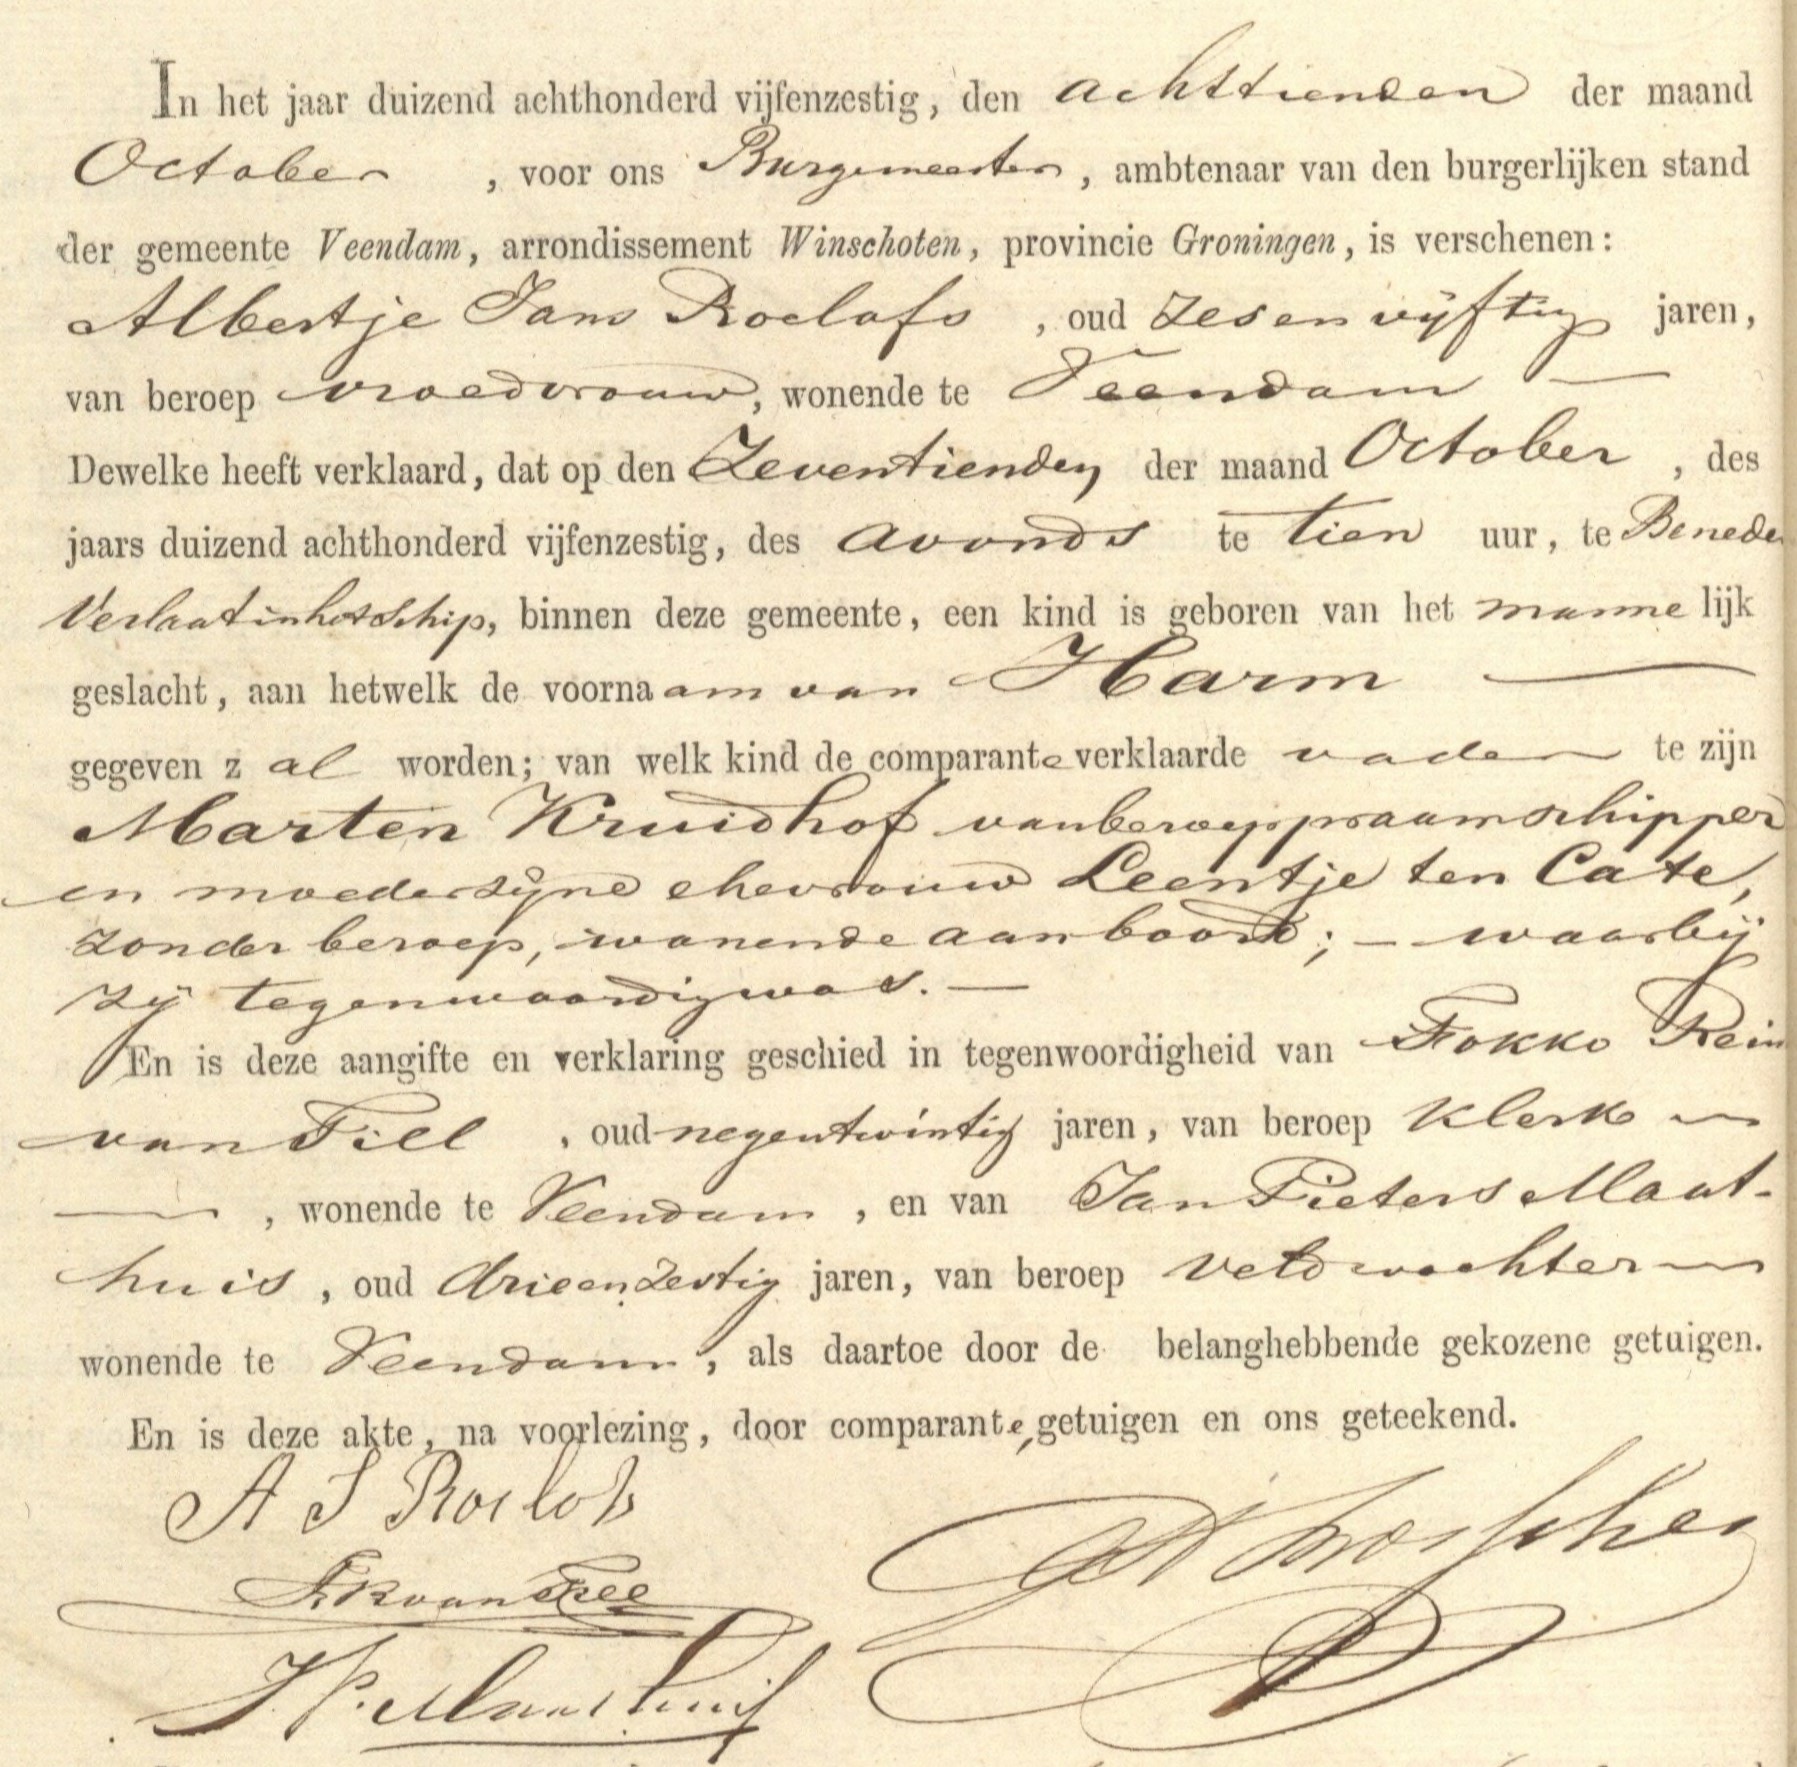 In het jaar duizend achthonderd vijfenzestig, den achttienden der maand
October, voor ons Burgemeester, ambtenaar van den burgerlijken stand
der gemeente Veendam, arrondissement Winschoten, provincie Groningen, is verschenen:
Albertje Jans Roelofs, oud zesenvijftig jaren,
van beroep vroedvrouw, wonende te Veendam —
Dewelke heeft verklaard, dat op den Zeventienden der maand October, des
jaars duizend achthonderd vijfenzestig, des avonds te tien uur, te Beneden
Verlaat in het Schip, binnen deze gemeente, een kind is geboren van het mannelijk
geslacht, aan hetwelk de voornaam van Harm —
gegeven zal worden; van welk kind de comparante verklaarde vader te zijn
Marten Kruidhof van beroep praamschipper
en moeder zijne ehevrouw Leentje ten Cate,
zonder beroep, wonende aan boord; — waarbij
zij tegenwoordig was. —
En is deze aangifte en verklaring geschied in tegenwoordigheid van Fokko Rein
van Tiel, oud negentwintig jaren, van beroep klerk —
—, wonende te Veendam, en van Jan Pieters Maat-
huis, oud drieenzestig jaren, van beroep veldwachter —
wonende te Veendam, als daartoe door de belanghebbende gekozene getuigen.
En is deze akte, na voorlezing, door comparante, getuigen en ons geteekend.
A J Roelofs
F. R van Tiel
J P. Maathuis